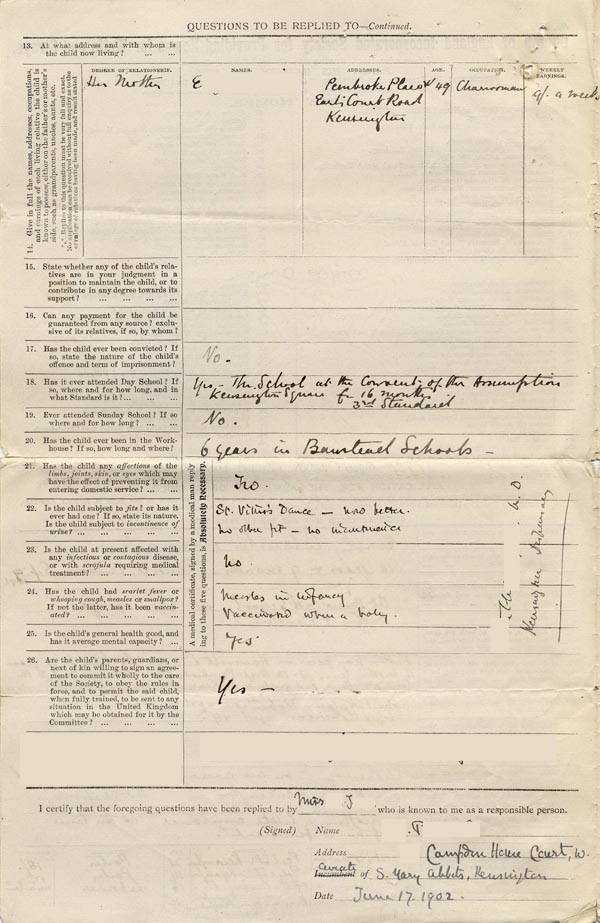 QUESTIONS TO BE REPLIED TO—Continued.
13. At what address and with whom is
the child now living? ... ...
14. Give in full the names, addresses, occupations,
and earnings of each living relative the child is
known to possess, either on the father's or mother's
side, such as grandparents, uncles, aunts, etc.
*** Replies to this question must be very full and exact.
No application can be received without full enquiry as to the
earnings of relatives having been made, and result stated
DEGREE OF RELATIONSHIP. NAMES. ADDRESSES. AGE. OCCUPATION. WEEKLY
EARNINGS.
Her Mother E Pembroke Place 49 Charwoman 9/. a week
Earl's Court Road
Kensington
15. State whether any of the child's rela-
tives are in your judgment in a
position to maintain the child, or to
contribute in any degree towards its
support? ... ... ...
16. Can any payment for the child be
guaranteed from any source? exclu-
sive of its relatives, if so, by whom?
17. Has the child ever been convicted? If
so, state the nature of the child's
offence and term of imprisonment?
No.
18. Has it ever attended Day School? If
so, where and for how long, and in
what Standard is it?... ... ...
Yes - The School at the Convent of the Assumption
Kensington Square for 16 months
3rd Standard
19. Ever attended Sunday School? If so
where and for how long? ... ...
No.
20. Has the child ever been in the Work-
house? If so, how long and where?
6 years in Banstead Schools -
A medical certificate, signed by a medical man reply
ing to these five questions, is Absolutely Necessary.
21. Has the child any affections of the
limbs, joints, skin, or eyes which may
have the effect of preventing it from
entering domestic service? ... ...
No.
22. Is the child subject to fits? or has it
ever had one? If so, state its nature.
Is the child subject to incontinence of
urine? ... ... ... ...
St. Vitus's Dance - now better.
No other fit - no incontinence
23. Is the child at present affected with
any infectious or contagious disease,
or with scrofula requiring medical
treatment? ... ... ...
No.
24. Has the child had scarlet fever or
whooping cough, measles or smallpox?
If not the latter, has it been vaccin-
ated? ... ... ... ...
Measles in infancy
Vaccinated when a baby.
25. Is the child's general health good, and
has it average mental capacity? ...
Yes
M.D.
Kensington Infirmary
26. Are the child's parents, guardians, or
next of kin willing to sign an agree-
ment to commit it wholly to the care
of the Society, to obey the rules in
force, and to permit the said child,
when fully trained, to be sent to any
situation in the United Kingdom
which may be obtained for it by the
Committee? ... ... ...
Yes -
I certify that the foregoing questions have been replied to by Mrs J who is known to me as a responsible person.
(Signed) Name T
Address Campden House Court, W.
Curate
Incumbent of S. Mary Abbots, Kensington
Date June 17. 1902.